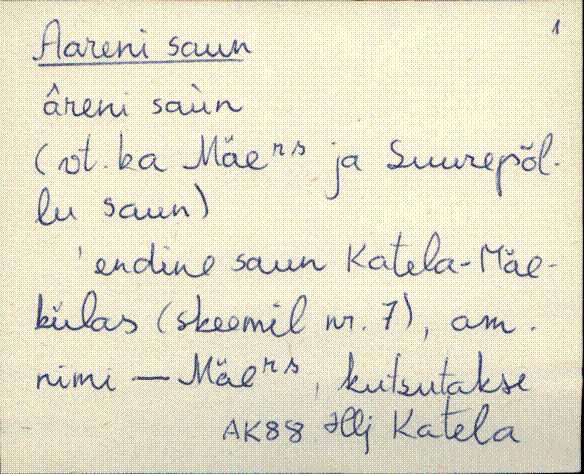 1
Aareni saun
âreni saùn
(vt. ka Mäe rs ja Suurepõl-
lu saun)
'endine saun Katela-Mäe-
külas (skeemil nr. 7), am.
nimi — Mäe rs, kutsutakse
AK88 Hlj Katela